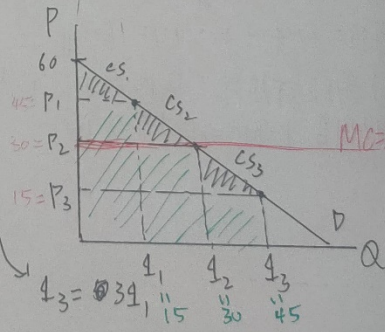 P
60
CS₁
45 = P₁
CS₂
30 = P₂
MC =
CS₃
15 = P₃
D
Q
q₁ q₂ q₃
q₃ = 3q₁
= 15 = 30 = 45